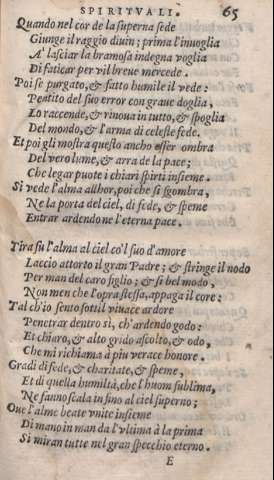 SPIRITVALI. 65
Quando nel cor de la superna sede
Giunge il raggio diuin; prima l'inuoglia
A' lasciar la bramosa indegna voglia
Di faticar per vil breue mercede.
Poi se purgato, & fatto humile il vede:
Pentito del suo error con graue doglia,
Lo raccende, & rinoua in tutto, & spoglia
Del mondo, & l'arma di celeste fede.
Et poi gli mostra questo ancho esser ombra
Del vero lume, & arra de la pace;
Che legar puote i chiari spirti insieme.
Si vede l'alma allhor, poi che si sgombra,
Ne la porta del ciel, di fede, & speme
Entrar ardendo ne l'eterna pace.
Tira su l'alma al ciel co'l suo d'amore
Laccio attorto il gran Padre; & stringe il nodo
Per man del caro figlio; & sì bel modo,
Non men che l'opra stessa, appaga il core:
Tal ch'io sento sottil viuace ardore
Penetrar dentro sì, ch'ardendo godo:
Et chiaro, & alto grido ascolto, & odo,
Che mi richiama à piu verace honore.
Gradi di fede, & charitate, & speme,
Et di quella humiltà, che l'huom sublima,
Ne fanno scala in sino al ciel superno;
Oue l'alme beate vnite insieme
Di mano in man da l'vltima à la prima
Si miran tutte nel gran specchio eterno.
E